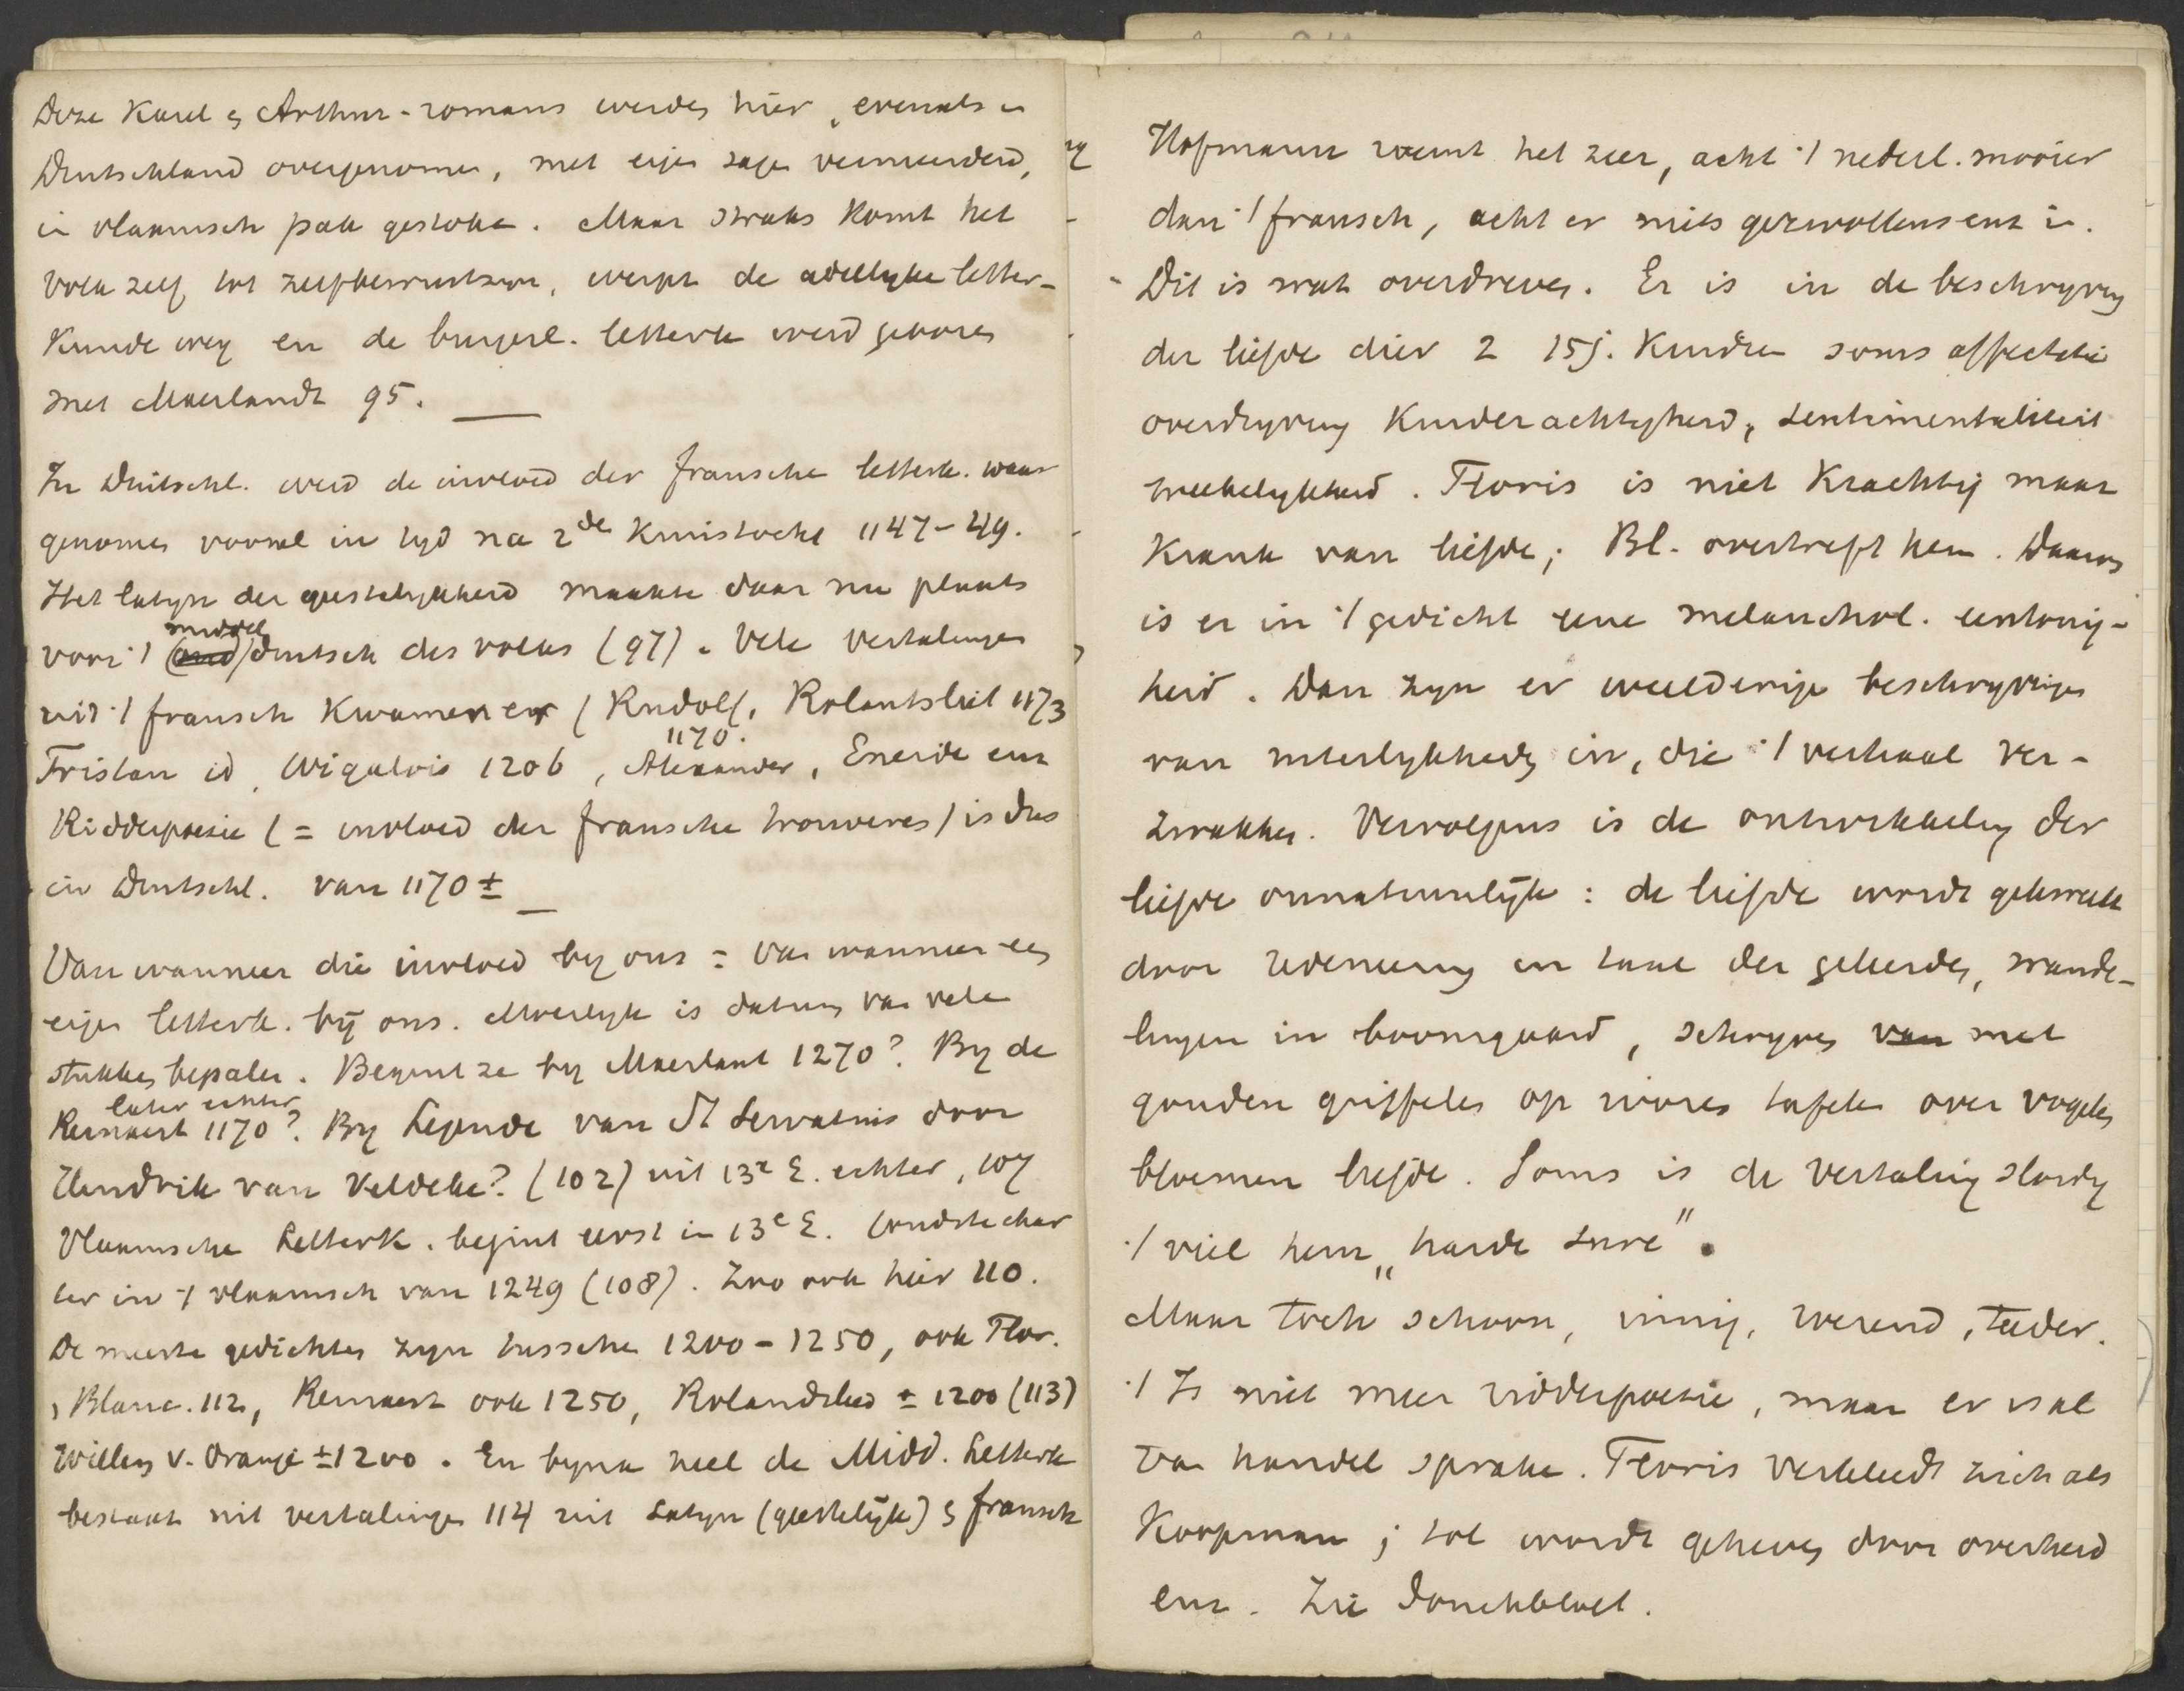 Deze Karel & Arthur-romans werden hier, evenals in
Duitschland overgenomen, met eigen sagen vermeerderd,
in vlaamsch pak gestoken. Maar straks komt het
volk zelf tot zelfbewustzijn, werpt de adellyke letter-
kunde weg en de burgerl. letterk werd geboren
met Maerlandt 95. —
In Duitschl. werd de invloed der fransche letterk. waar
genomen vooral in tyd na 2de Kruistocht 1147-49.
Het latyn der geestelykheid maakte daar nu plaats
voor 't middelduitsch des volks (97). Vele vertalingen
uit 't fransch kwamen er (Rudolf, Rolantsliet 1173
Tristan id, Wigalois 1206, Alexander, Eneide enz
1170.
Ridderpoezie (= invloed der fransche trouveres) is dus
in Duitschl. van 1170 ± —
Van wanneer die invloed by ons = van wanneer een
eigen letterk. bij ons. Moeilyk is datum van vele
stukken bepalen. Begint ze by Maerlant 1270? By de
Reinaert 1170? By Legende van St Servatius door
later echter
Hendrik van Veldeke? (102) uit 13e E. echter, 107
Vlaamsche Letterk. begint eerst in 13e E. Oudste char
ter in 't vlaamsch van 1249 (108). Zoo ook hier 110.
De meeste gedichten zyn tusschen 1200-1250, ook Flor.
& Blanc. 112, Reinaert ook 1250, Rolandslied ± 1200 (113)
Willem v. Oranje ± 1200. En byna heel de Midd. Letterk
bestaat uit vertalingen 114 uit Latyn (geestelijk) & fransch
Hofmann roemt het zeer, acht 't nederl. mooier
dan 't fransch, acht er niets gezwollens enz in.
Dit is wat overdreven. Er is in de beschryving
der liefde dier 2 15j. Kindren soms affectatie
overdryving Kinderachtigheid, sentimentaliteit
weekelykheid. Floris is niet Krachtig maar
Krank van liefde; Bl. overtreft hem. Daarom
is er in 't gedicht eene melanchol. eentonig-
heid. Dan zyn er weelderige beschryvingen
van uiterlykheden in, die 't verhaal ver-
zwakken. Vervolgens is de ontwikkeling der
liefde onnatuurlijk: de liefde wordt gekweekt
door redeneering en taal der geleerden, wande-
lingen in boomgaard, schryven van met
gouden griffels op ivoren tafels over vogels
bloemen liefde. Soms is de vertaling slordig
't viel hem „harde sure".
Maar toch schoon, innig, roerend, teeder.
't Is niet meer ridderpoezie, maar er is al
van handel sprake. Floris verkleedt zich als
Koopman; tol wordt geheven door overheid
enz. Zie Jonckbloet.